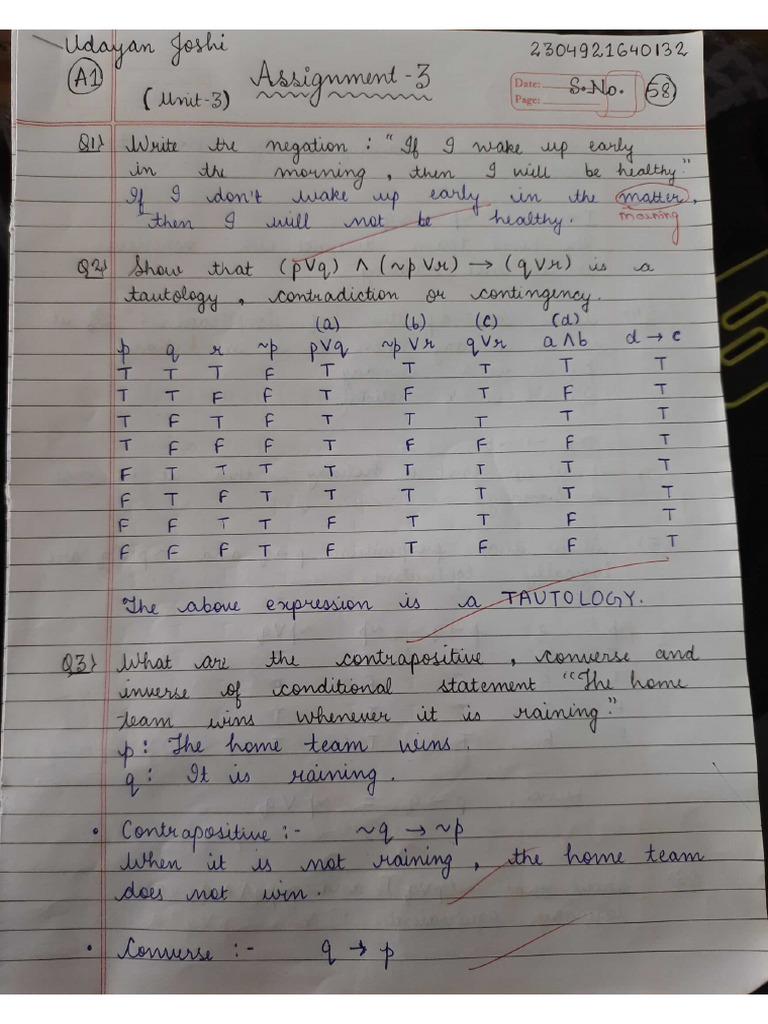 Udayan Joshi 2304921640132
A1 (Unit-3) Assignment-3 Date: Page: S.No. 58
Q1} Write the negation : "If I wake up early
in the morning, then I will be healthy"
If I don't wake up early in the matter,
morning
then I will not be healthy.
Q2} Show that (p∨q) ∧ (~p∨r) → (q∨r) is a
tautology, contradiction or contingency.
(a) (b) (c) (d)
p q r ~p p∨q ~p∨r q∨r a∧b d→c
T T T F T T T T T
T T F F T F T F T
T F T F T T T T T
T F F F T F F F T
F T T T T T T T T
F T F T T T T T T
F F T T F T T F T
F F F T F T F F T
The above expression is a TAUTOLOGY.
Q3} What are the contrapositive, converse and
inverse of conditional statement "The home
team wins whenever it is raining."
p: The home team wins.
q: It is raining.
• Contrapositive :- ~q → ~p
When it is not raining, the home team
does not win.
• Converse :- q → p